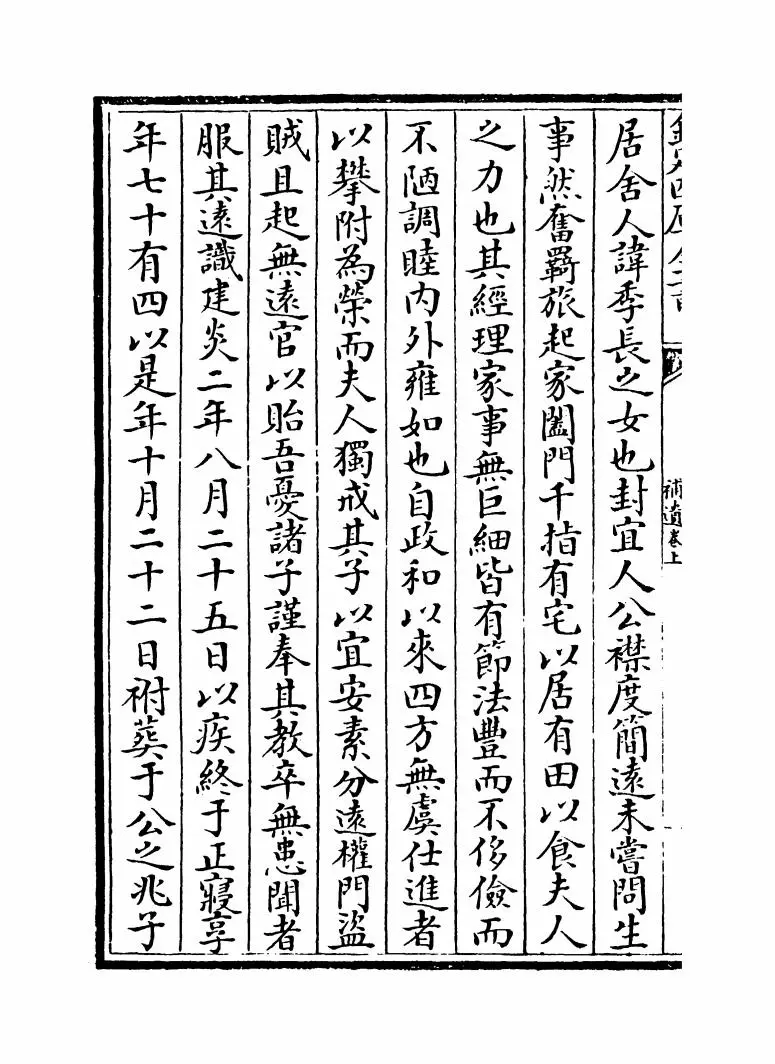 欽定四庫全書
補遺卷上
居舍人諱季長之女也封宜人公襟度簡遠未嘗問生
事然奮羇旅起家闔門千指有宅以居有田以食夫人
之力也其經理家事無巨細皆有節法豐而不侈儉而
不陋調睦内外雍如也自政和以來四方無虞仕進者
以攀附為榮而夫人獨戒其子以宜安素分遠權門盜
賊且起無遠官以貽吾憂諸子謹奉其教卒無患聞者
服其遠識建炎二年八月二十五日以疾終于正寢享
年七十有四以是年十月二十二日祔葬于公之兆子